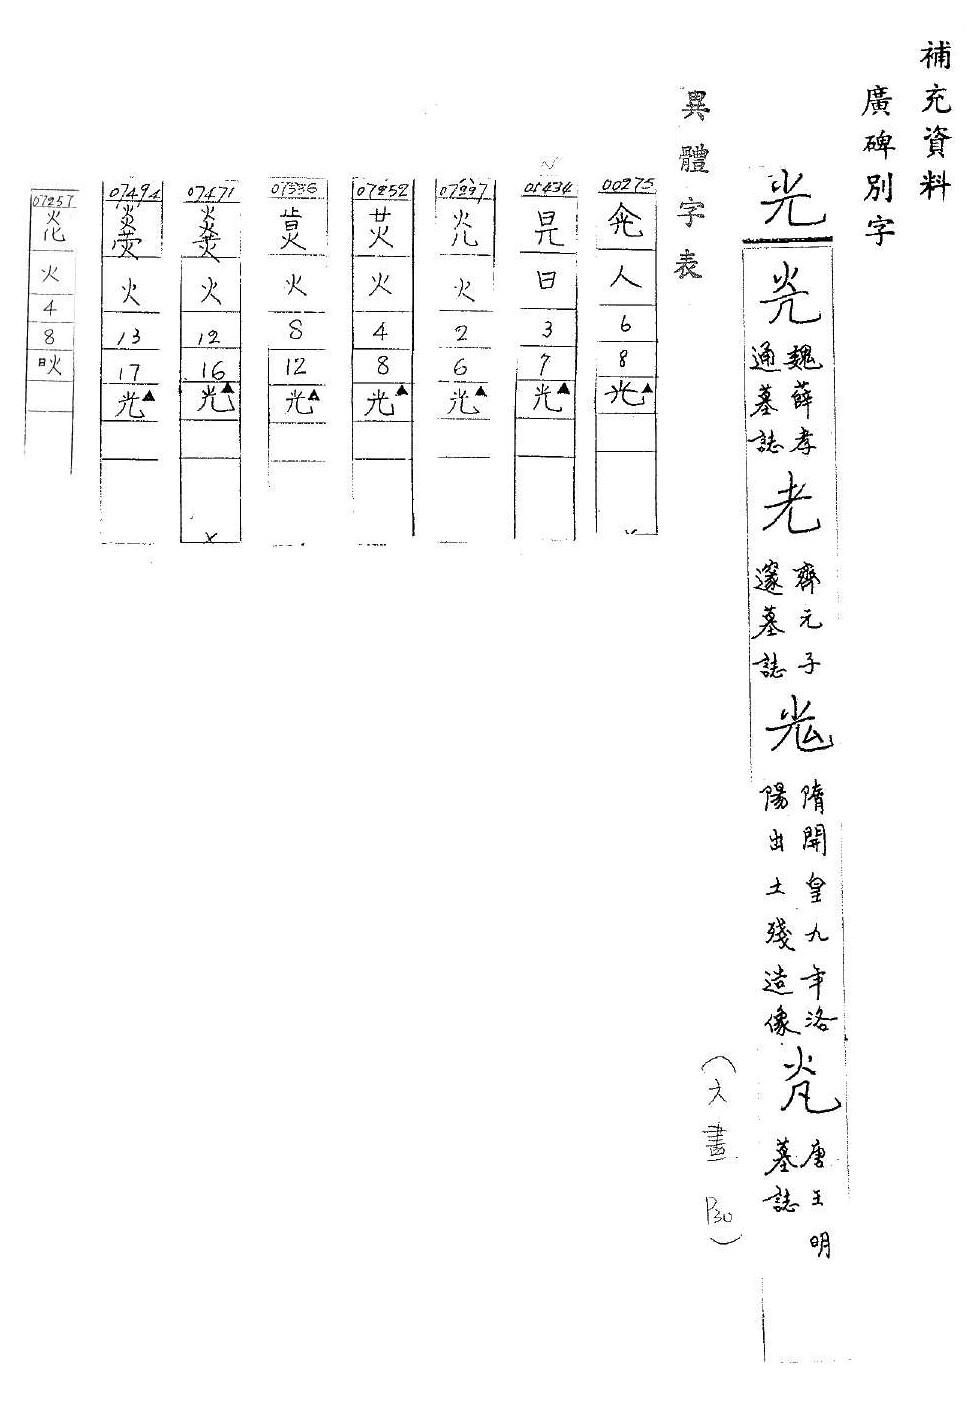 補充資料
廣碑別字
光
炗
魏薛孝
通墓誌
齊元子
邃墓誌
隋開皇九年洛
陽出土殘造像
唐王明
墓誌
(六畫 P30)
異體字表
00275
人
6
8
光▲
05434
日
3
7
光▲
火
2
6
光▲
07252
火
4
8
光▲
火
8
12
光▲
07471
火
12
16
光▲
07494
火
13
17
光▲
07257
火
4
8